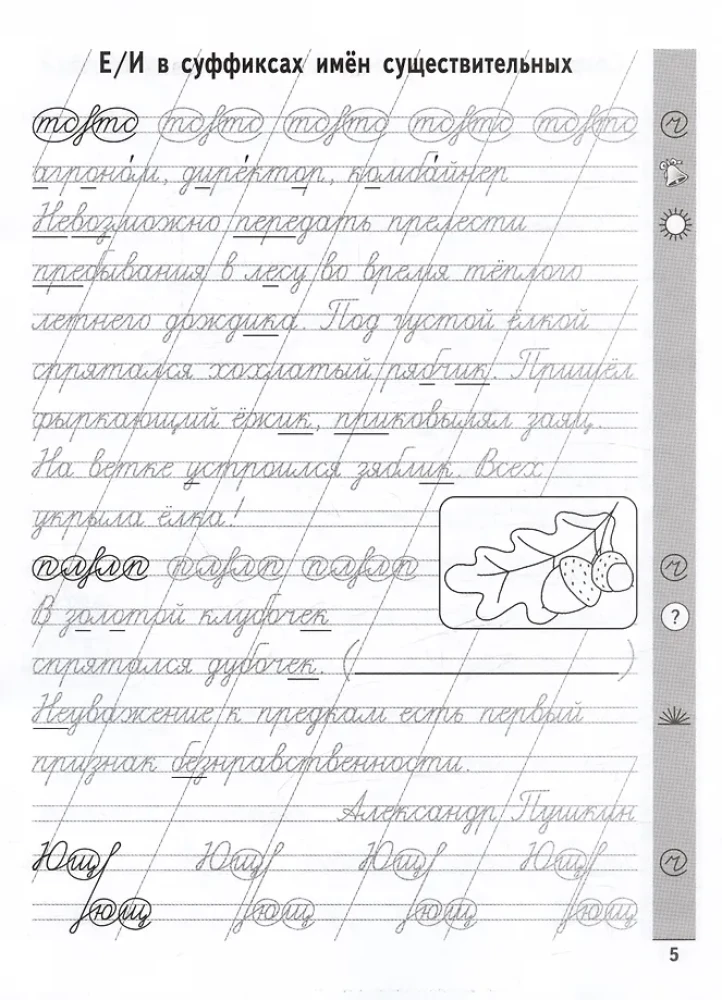 Е/И в суффиксах имён существительных
агроно́м, дире́ктор, комба́йнер
Невозможно передать прелести
пребывания в лесу во время тёплого
летнего дождика. Под густой ёлкой
спрятался хохлатый рябчик. Пришёл
фыркающий ёжик, приковылял заяц.
На ветке устроился зяблик. Всех
укрыла ёлка!
В золотой клубочек
спрятался дубочек. (                    )
?
Неуважение к предкам есть первый
признак безнравственности.
Александр Пушкин
Ющ Ющ Ющ Ющ
ющ ющ ющ ющ
5